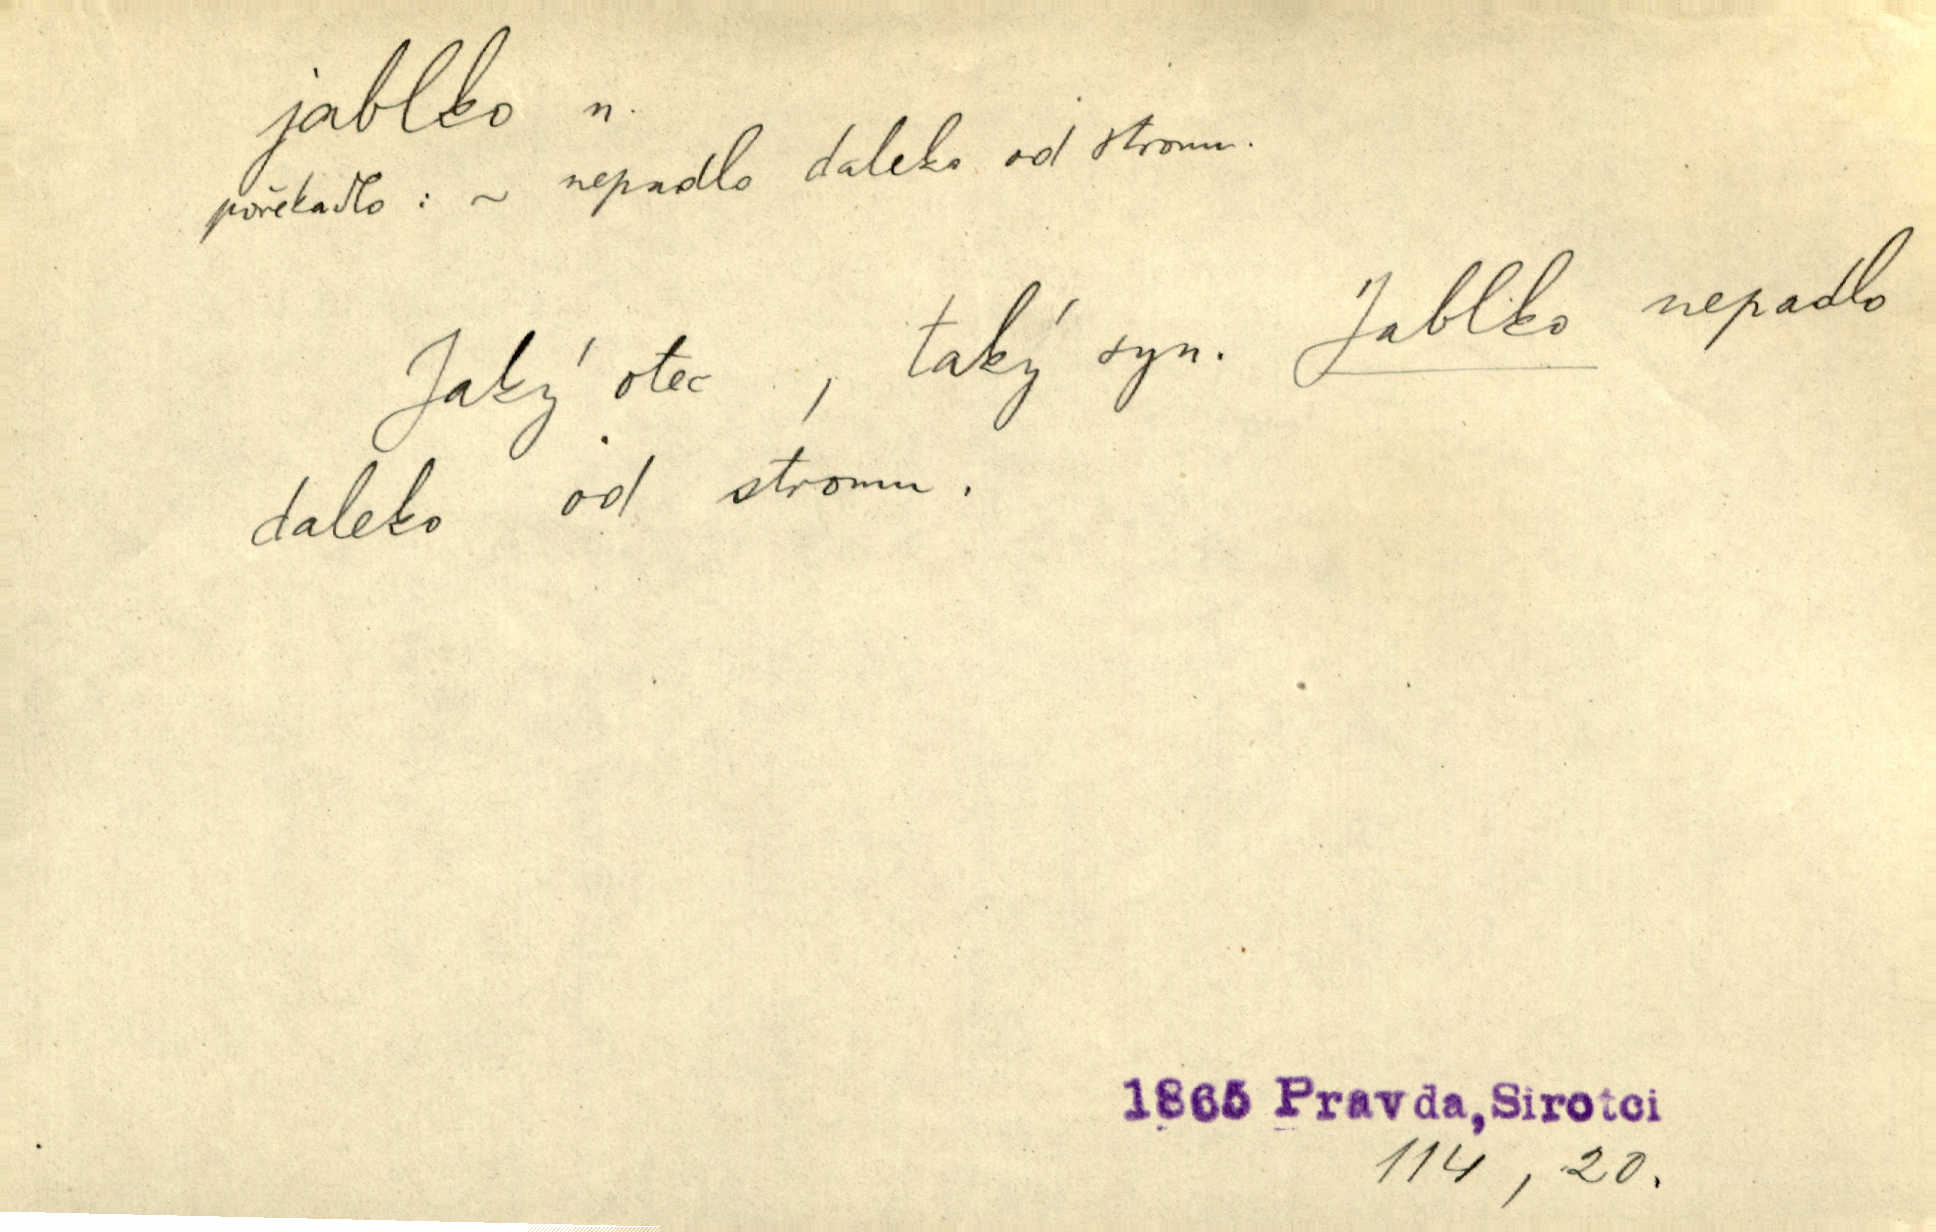 jablko n.
pořekadlo : ~ nepadlo daleko od stromu.
Jaký otec , taký syn. Jablko nepadlo
daleko od stromu .
1865 Pravda, Sirotci
114 , 20.